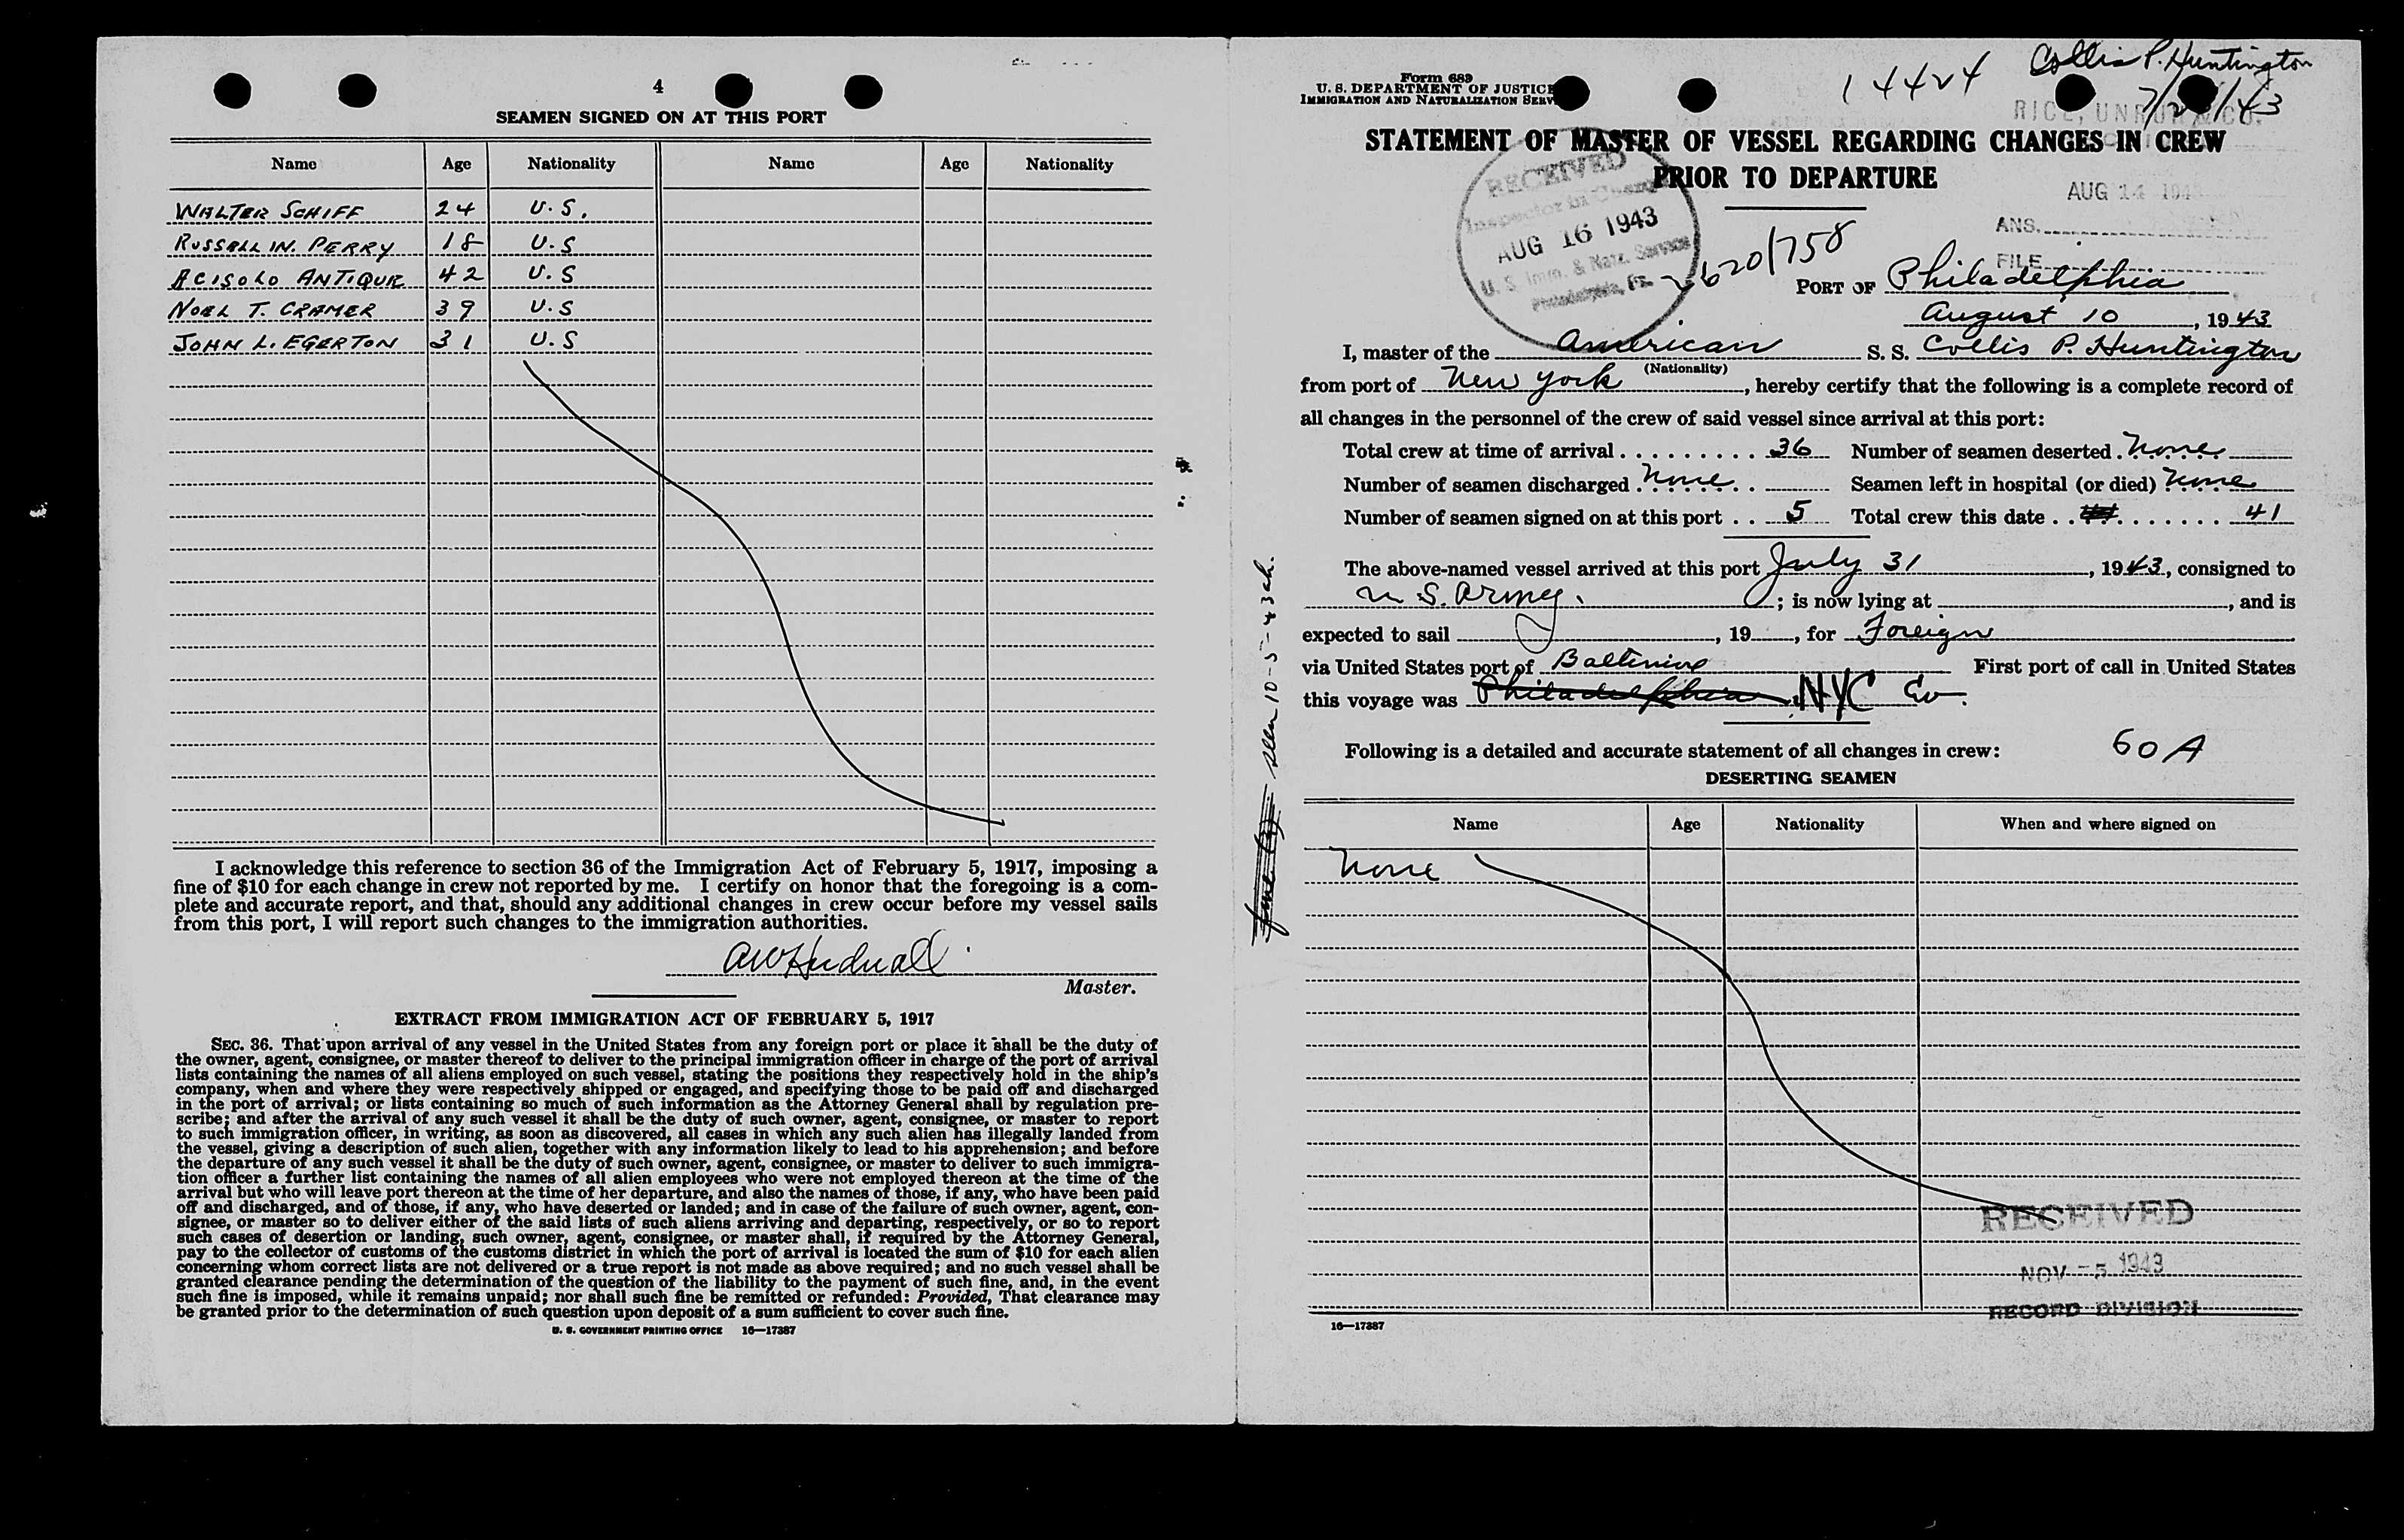 4
SEAMEN SIGNED ON AT THIS PORT
Name Age Nationality Name Age Nationality
WALTER SCHIFF 24 U.S.
RUSSELL W. PERRY 18 U.S
ACISOLO ANTIQUE 42 U.S
NOEL T. CRAMER 39 U.S
JOHN L. EGERTON 31 U.S
I acknowledge this reference to section 36 of the Immigration Act of February 5, 1917, imposing a
fine of $10 for each change in crew not reported by me. I certify on honor that the foregoing is a com-
plete and accurate report, and that, should any additional changes in crew occur before my vessel sails
from this port, I will report such changes to the immigration authorities.
AW Hudnall
Master.
EXTRACT FROM IMMIGRATION ACT OF FEBRUARY 5, 1917
SEC. 36. That upon arrival of any vessel in the United States from any foreign port or place it shall be the duty of
the owner, agent, consignee, or master thereof to deliver to the principal immigration officer in charge of the port of arrival
lists containing the names of all aliens employed on such vessel, stating the positions they respectively hold in the ship's
company, when and where they were respectively shipped or engaged, and specifying those to be paid off and discharged
in the port of arrival; or lists containing so much of such information as the Attorney General shall by regulation pre-
scribe; and after the arrival of any such vessel it shall be the duty of such owner, agent, consignee, or master to report
to such immigration officer, in writing, as soon as discovered, all cases in which any such alien has illegally landed from
the vessel, giving a description of such alien, together with any information likely to lead to his apprehension; and before
the departure of any such vessel it shall be the duty of such owner, agent, consignee, or master to deliver to such immigra-
tion officer a further list containing the names of all alien employees who were not employed thereon at the time of the
arrival but who will leave port thereon at the time of her departure, and also the names of those, if any, who have been paid
off and discharged, and of those, if any, who have deserted or landed; and in case of the failure of such owner, agent, con-
signee, or master so to deliver either of the said lists of such aliens arriving and departing, respectively, or so to report
such cases of desertion or landing, such owner, agent, consignee, or master shall, if required by the Attorney General,
pay to the collector of customs of the customs district in which the port of arrival is located the sum of $10 for each alien
concerning whom correct lists are not delivered or a true report is not made as above required; and no such vessel shall be
granted clearance pending the determination of the question of the liability to the payment of such fine, and, in the event
such fine is imposed, while it remains unpaid; nor shall such fine be remitted or refunded: Provided, That clearance may
be granted prior to the determination of such question upon deposit of a sum sufficient to cover such fine.
U. S. GOVERNMENT PRINTING OFFICE 16—17387
Form 689
U. S. DEPARTMENT OF JUSTICE
IMMIGRATION AND NATURALIZATION SERV
14424 Collis P. Huntington
/43
STATEMENT OF MASTER OF VESSEL REGARDING CHANGES IN CREW
PRIOR TO DEPARTURE
RECEIVED
Inspector in Charge
AUG 16 1943
U. S. Imm. & Natz. Service
Philadelphia, Pa.
AUG 14 194
ANS.
FILE
620/758
PORT OF Philadelphia
August 10, 1943
I, master of the American S. S. Collis P. Huntington
(Nationality)
from port of New York, hereby certify that the following is a complete record of
all changes in the personnel of the crew of said vessel since arrival at this port:
Total crew at time of arrival 36 Number of seamen deserted None
Number of seamen discharged None Seamen left in hospital (or died) None
Number of seamen signed on at this port 5 Total crew this date 41
The above-named vessel arrived at this port July 31, 1943, consigned to
U.S. Army.; is now lying at, and is
expected to sail, 19, for Foreign
via United States port of Baltimore First port of call in United States
this voyage was Philadelphia NYC
Following is a detailed and accurate statement of all changes in crew: 60A
DESERTING SEAMEN
Name Age Nationality When and where signed on
None
RECEIVED
NOV -5 1943
RECORD DIVISION
16—17387
10-5-43